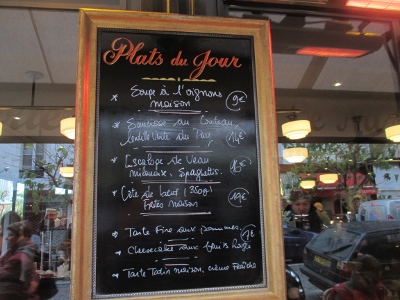 Plats du Jour
Soupe à l'oignons
maison 9€
Saucisse au Couteau
lentille Verte du Puy 14€
Escalope de Veau
Spaghettis. 16€
Côte de bœuf (350g)
Frites maison 19€
Tarte Fine aux pommes
Cheesecake aux fruits Rouges
Tarte Tatin maison, crème Fraîche